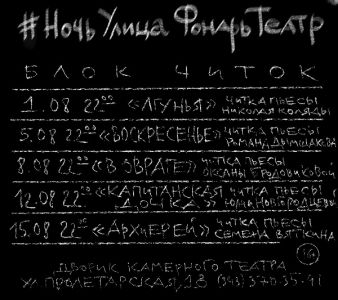 #Ночь Улица Фонарь Театр
БЛОК ЧИТОК
1.08 22 00 «ЛГУНЬЯ» ЧИТКА ПЬЕСЫ
НИКОЛАЯ КОЛЯДЫ
5.08 22 00 «ВОСКРЕСЕНЬЕ» ЧИТКА ПЬЕСЫ
РОМАНА ДЫМШАКОВА
8.08 22 00 «В ЭВРАТЕ» ЧИТКА ПЬЕСЫ
ОКСАНЫ
12.08 22 00 «КАПИТАНСКАЯ ДОЧКА» ЧИТКА ПЬЕСЫ
НОВГОРОДЦЕВА
15.08 22 00 «АРХИЕРЕЙ» ЧИТКА ПЬЕСЫ
СЕМЕНА ВЯТКИНА
ДВОРИК КАМЕРНОГО ТЕАТРА
УЛ ПРОЛЕТАРСКАЯ, 18 (343) 370-35-91